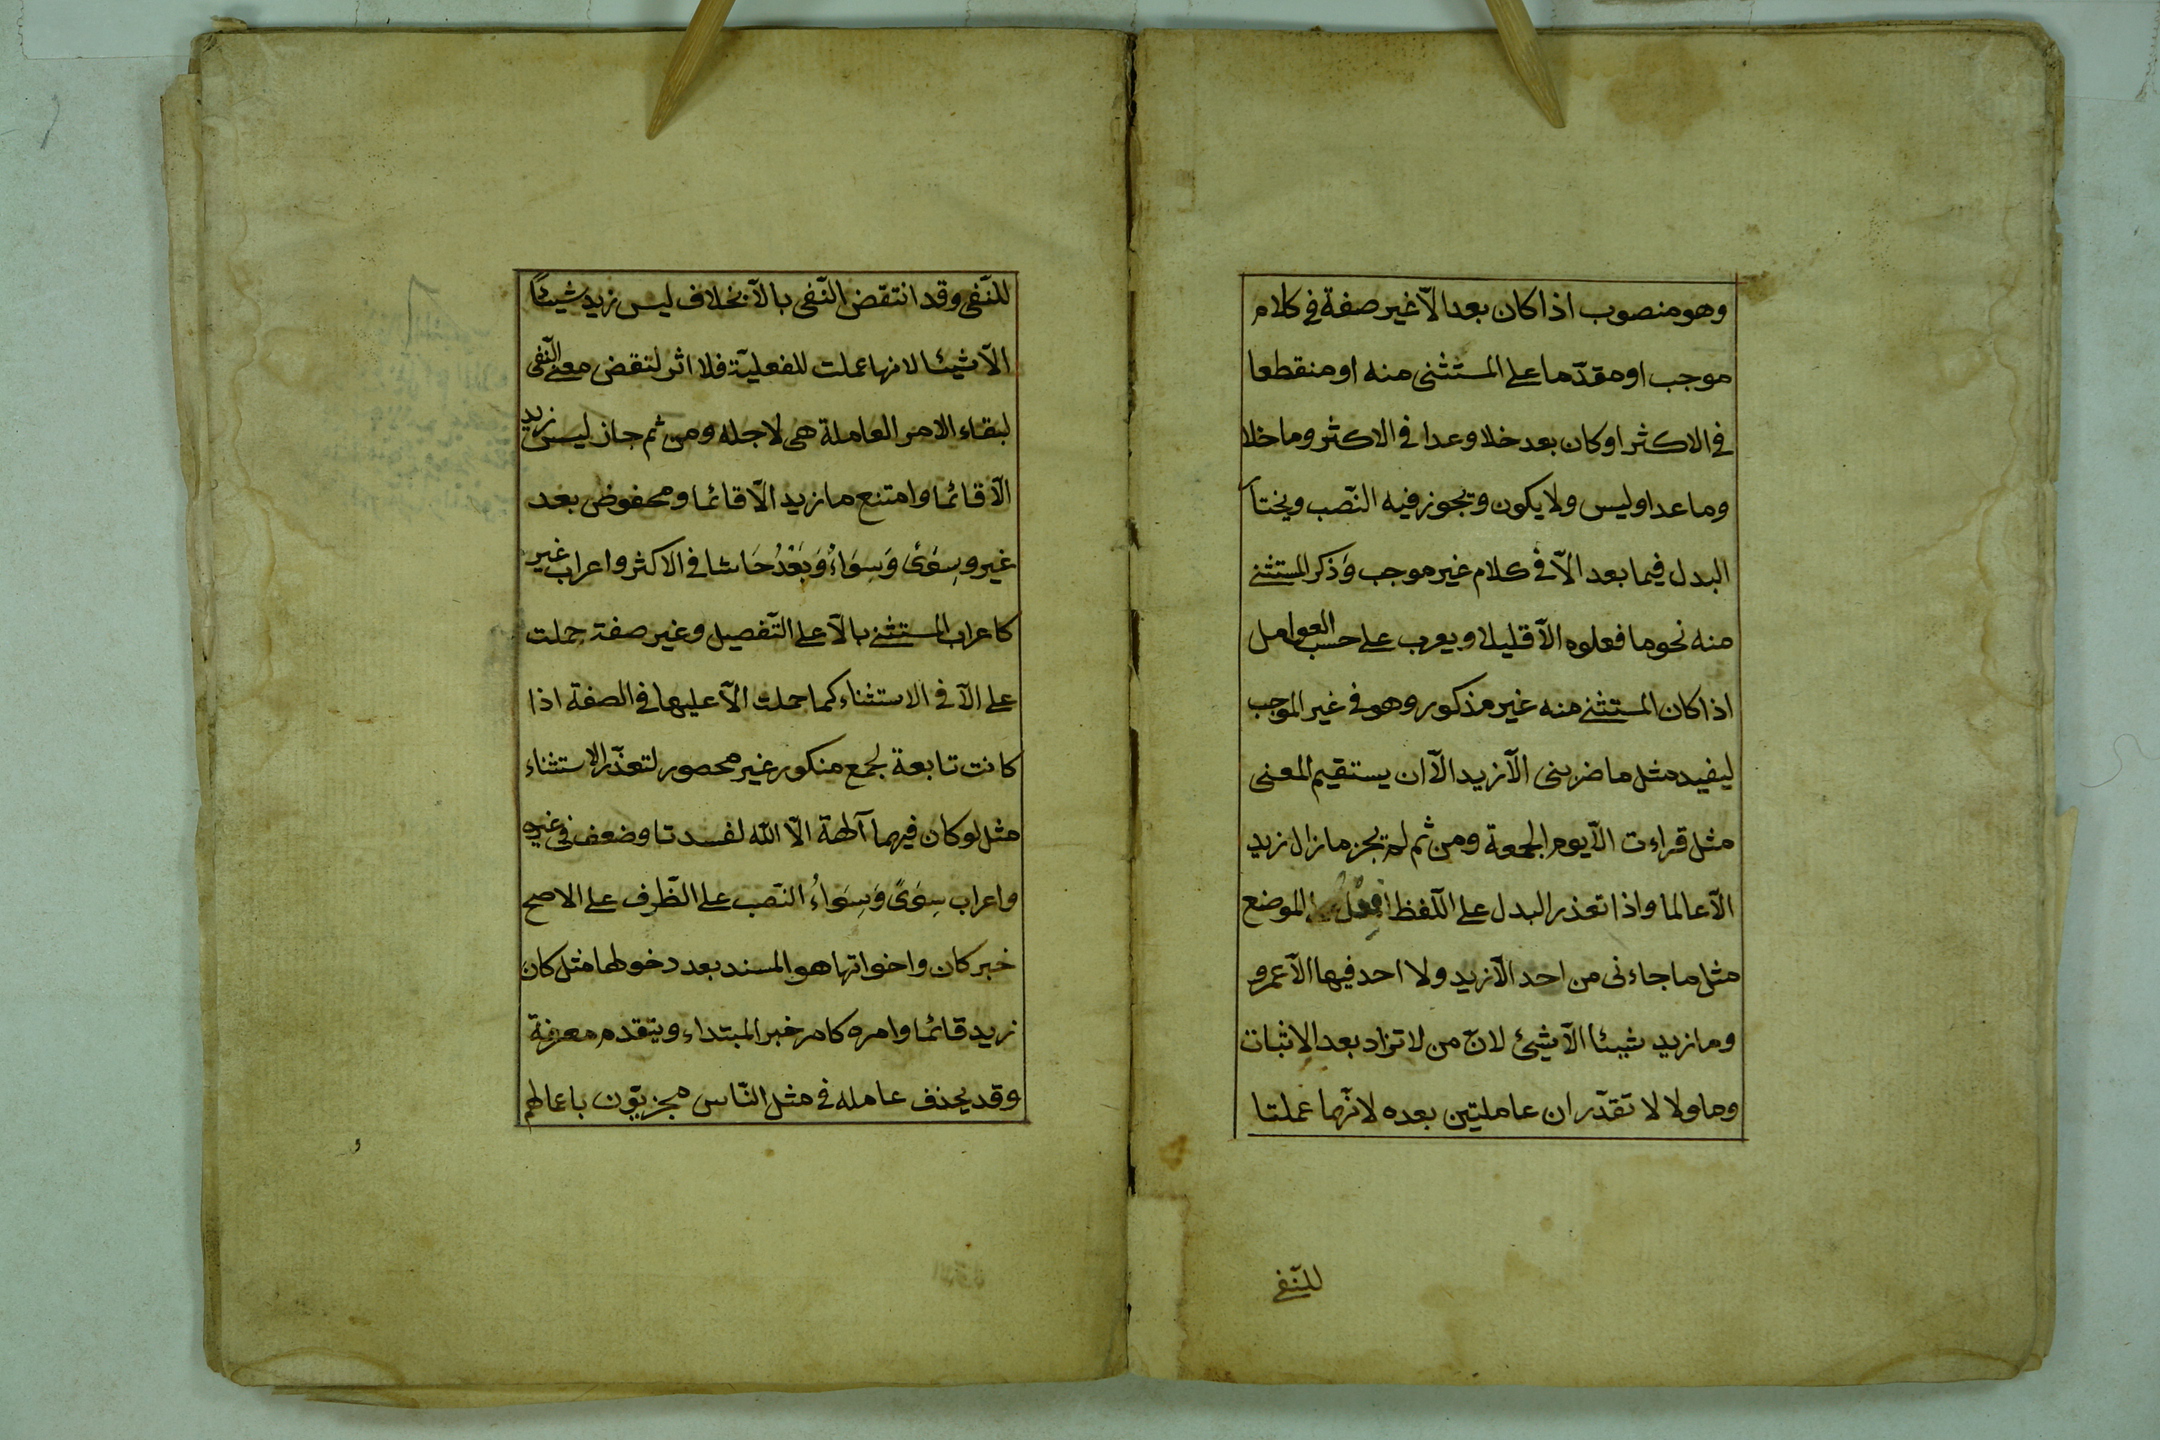 وهو منصوب اذا كان بعد الّا غير صفة فى كلام
موجب او مقدّما على المستثنى منه او منقطعا
فى الاكثر او كان بعد خلا وعدا فى الاكثر وما خلا
وما عدا وليس ولا يكون ويجوز فيه النّصب ويختار
البدل فيما بعد الّا فى كلام غير موجب وَذكر المستثنى
منه نحو ما فعلوه الّا قليلا ويعرب على حسب العوامل
اذا كان المستثنى منه غير مذكور وهو فى غير الموجب
ليفيد مثل ما ضربنى الّا زيد الّا ان يستقيم المعنى
مثل قراءت الّا يوم الجمعة ومن ثم لم يجز ما زال زيد
الّا عالما واذا تعذر البدل على اللّفظ الموضع
مثل ما جاءنى من احد الّا زيد ولا احد فيها الّا عمرو
وما زيد شيئا الّا شيئ لانّ من لا تزاد بعد الاثبات
وما ولا لا تقدّران عاملتين بعده لانّهما عملتا
للنّفى
للنّفى وقد انتقض النّفى بالّا بخلاف ليس زيد شيئاً
الّا شيئا لانها عملت للفعليّة فلا اثر لنقض معنى النّفى
لبقاء الامر العاملة هى لاجله ومن ثم جاز ليس زيد
الّا قائما وامتنع ما زيد الّا قائما ومخفوض بعد
غير وسِوَىً وَسِوَاءٌ وَبَعْدُ حَاشا فى الاكثر واعراب غير
كاعراب المستثنى بالّا على التّفصيل وغير صفة حملت
على الّا فى الاستثناء كما حملت الّا عليها فى الصفة اذا
كانت تابعة لجمع منكور غير محصور لتعذّر الاستثناء
مثل لو كان فيهما آلهة الّا اللّه لفسدتا وضعف فى غيره
واعراب سِوَىً وَسِوَاءُ النّصب على الظّرف على الاصح
خبر كان واخواتها هو المسند بعد دخولها مثل كان
زيد قائما وامره كامر خبر المبتداء ويتقدم معرفة
وقد يحذف عامله فى مثل النّاس مجزيّون باعمالهم